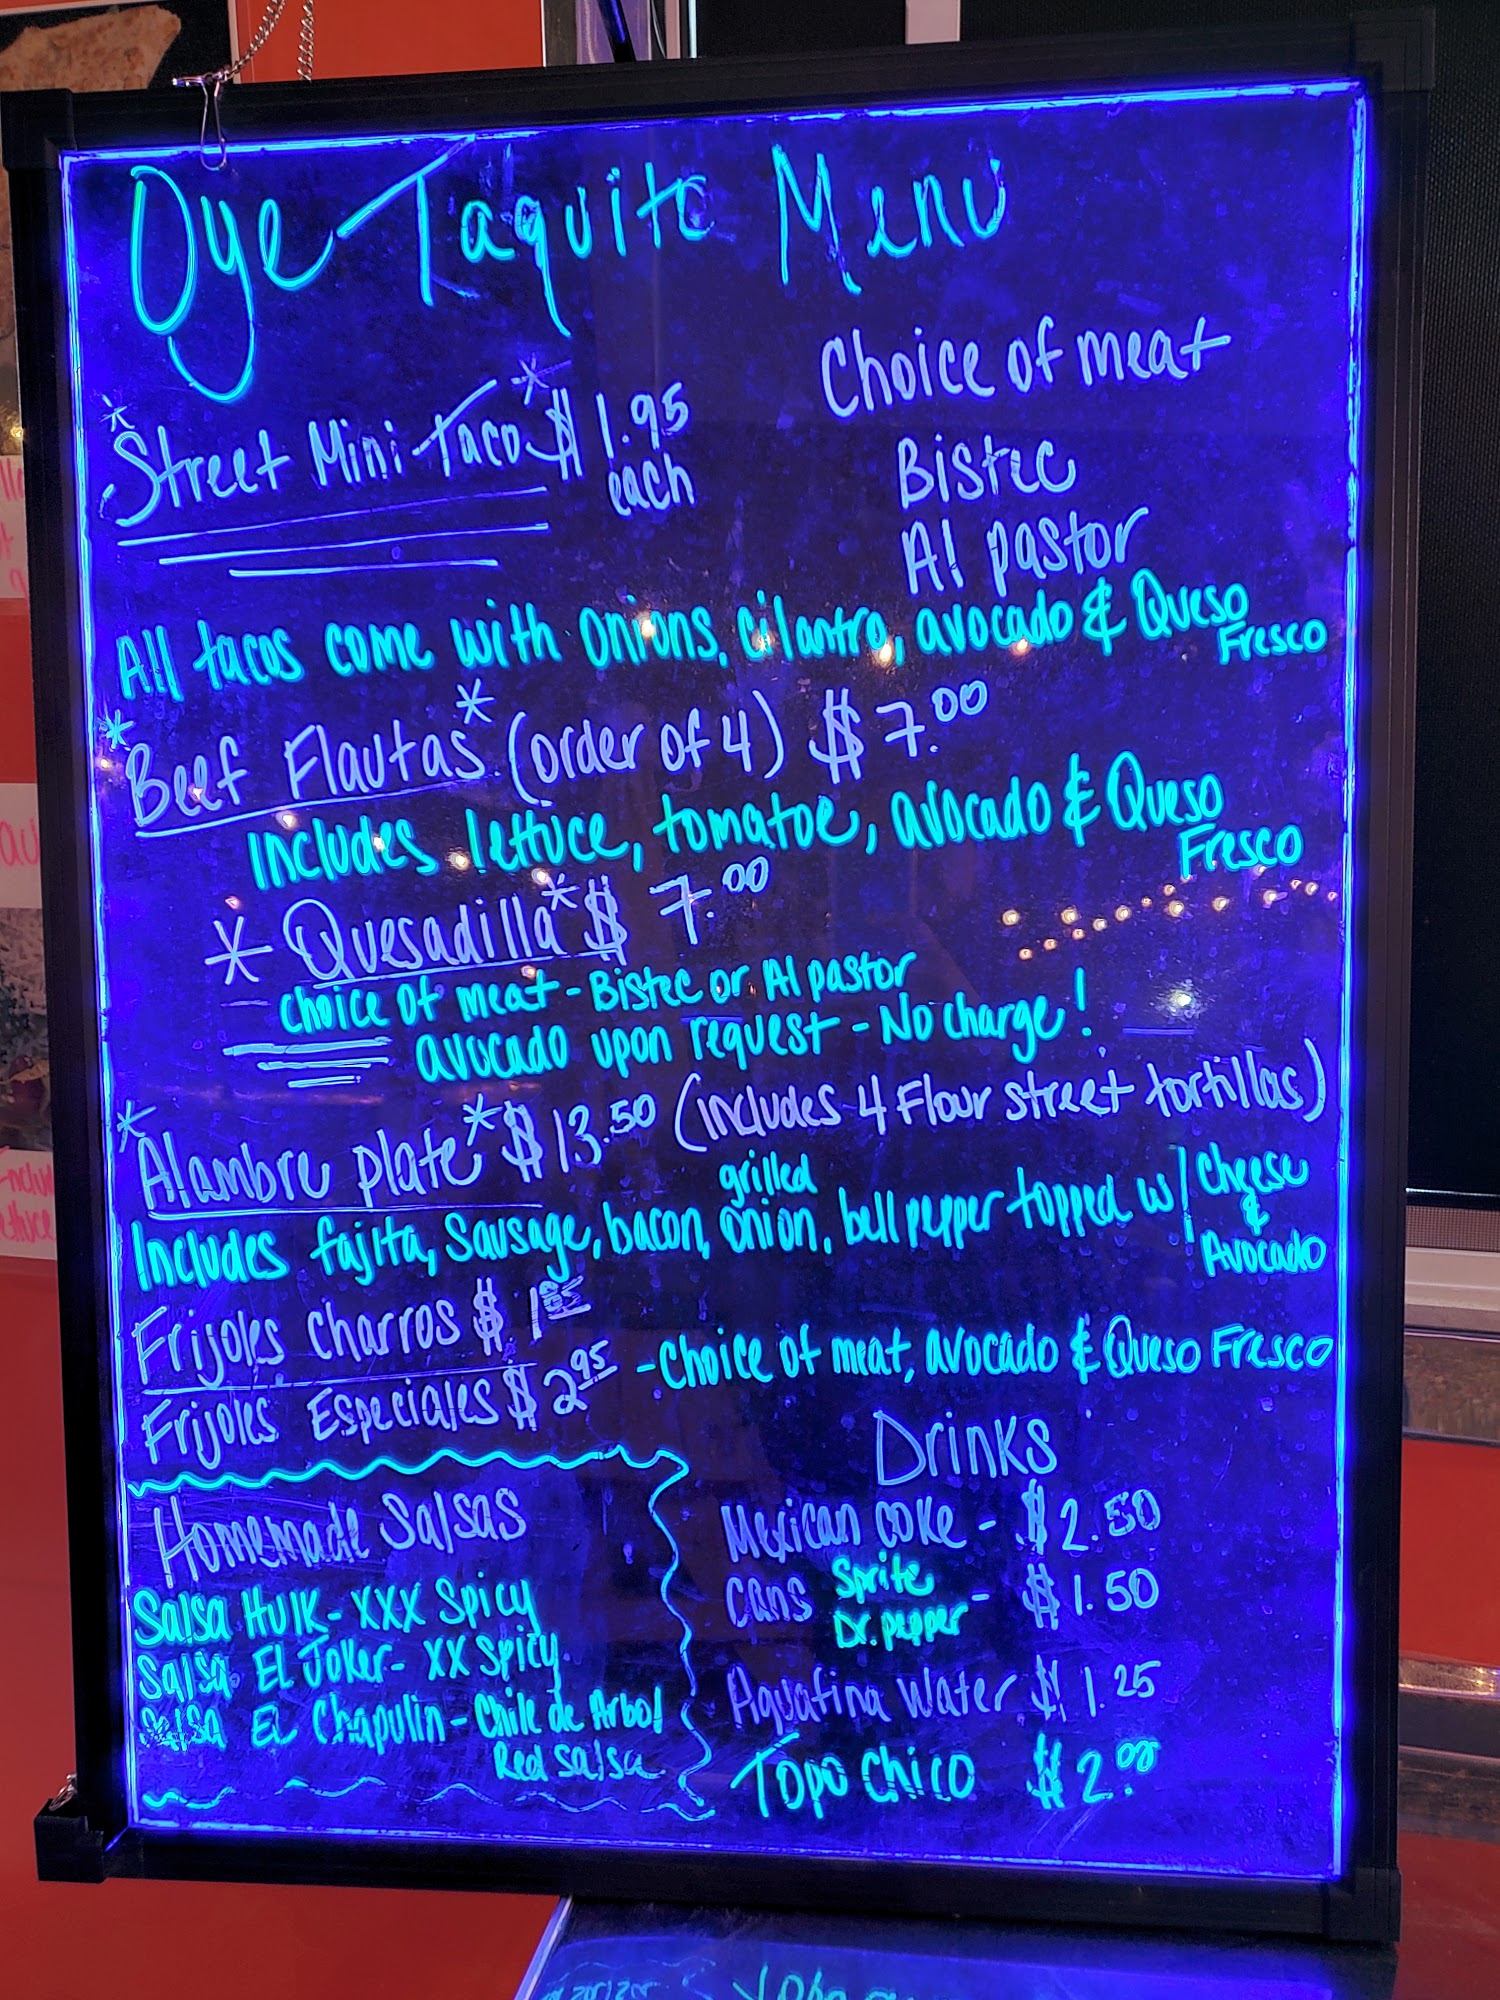 Oye Taquito Menu
*Street Mini Taco* $1.95
each
Choice of meat
Bistec
Al pastor
All tacos come with onions, cilantro, avocado & Queso
Fresco
*Beef Flautas* (order of 4) $7.00
Includes lettuce, tomatoe, avocado & Queso
Fresco
* Quesadilla* $7.00
choice of meat - Bistec or Al pastor
avocado upon request - No charge!
*Alambre plate* $13.50 (includes 4 Flour street tortillas)
grilled
Includes fajita, Sausage, bacon, onion, bell pepper topped w/ cheese
&
Avocado
Frijoles Charros $
Frijoles Especiales $2.95 - Choice of meat, avocado & Queso Fresco
Homemade Salsas
Salsa Hulk - XXX Spicy
Salsa El Joker - XX Spicy
Salsa El Chapulin - Chile de Arbol
Red salsa
Drinks
Mexican coke - $2.50
cans Sprite
Dr. pepper - $1.50
Aquafina Water $1.25
Topo Chico $2.00